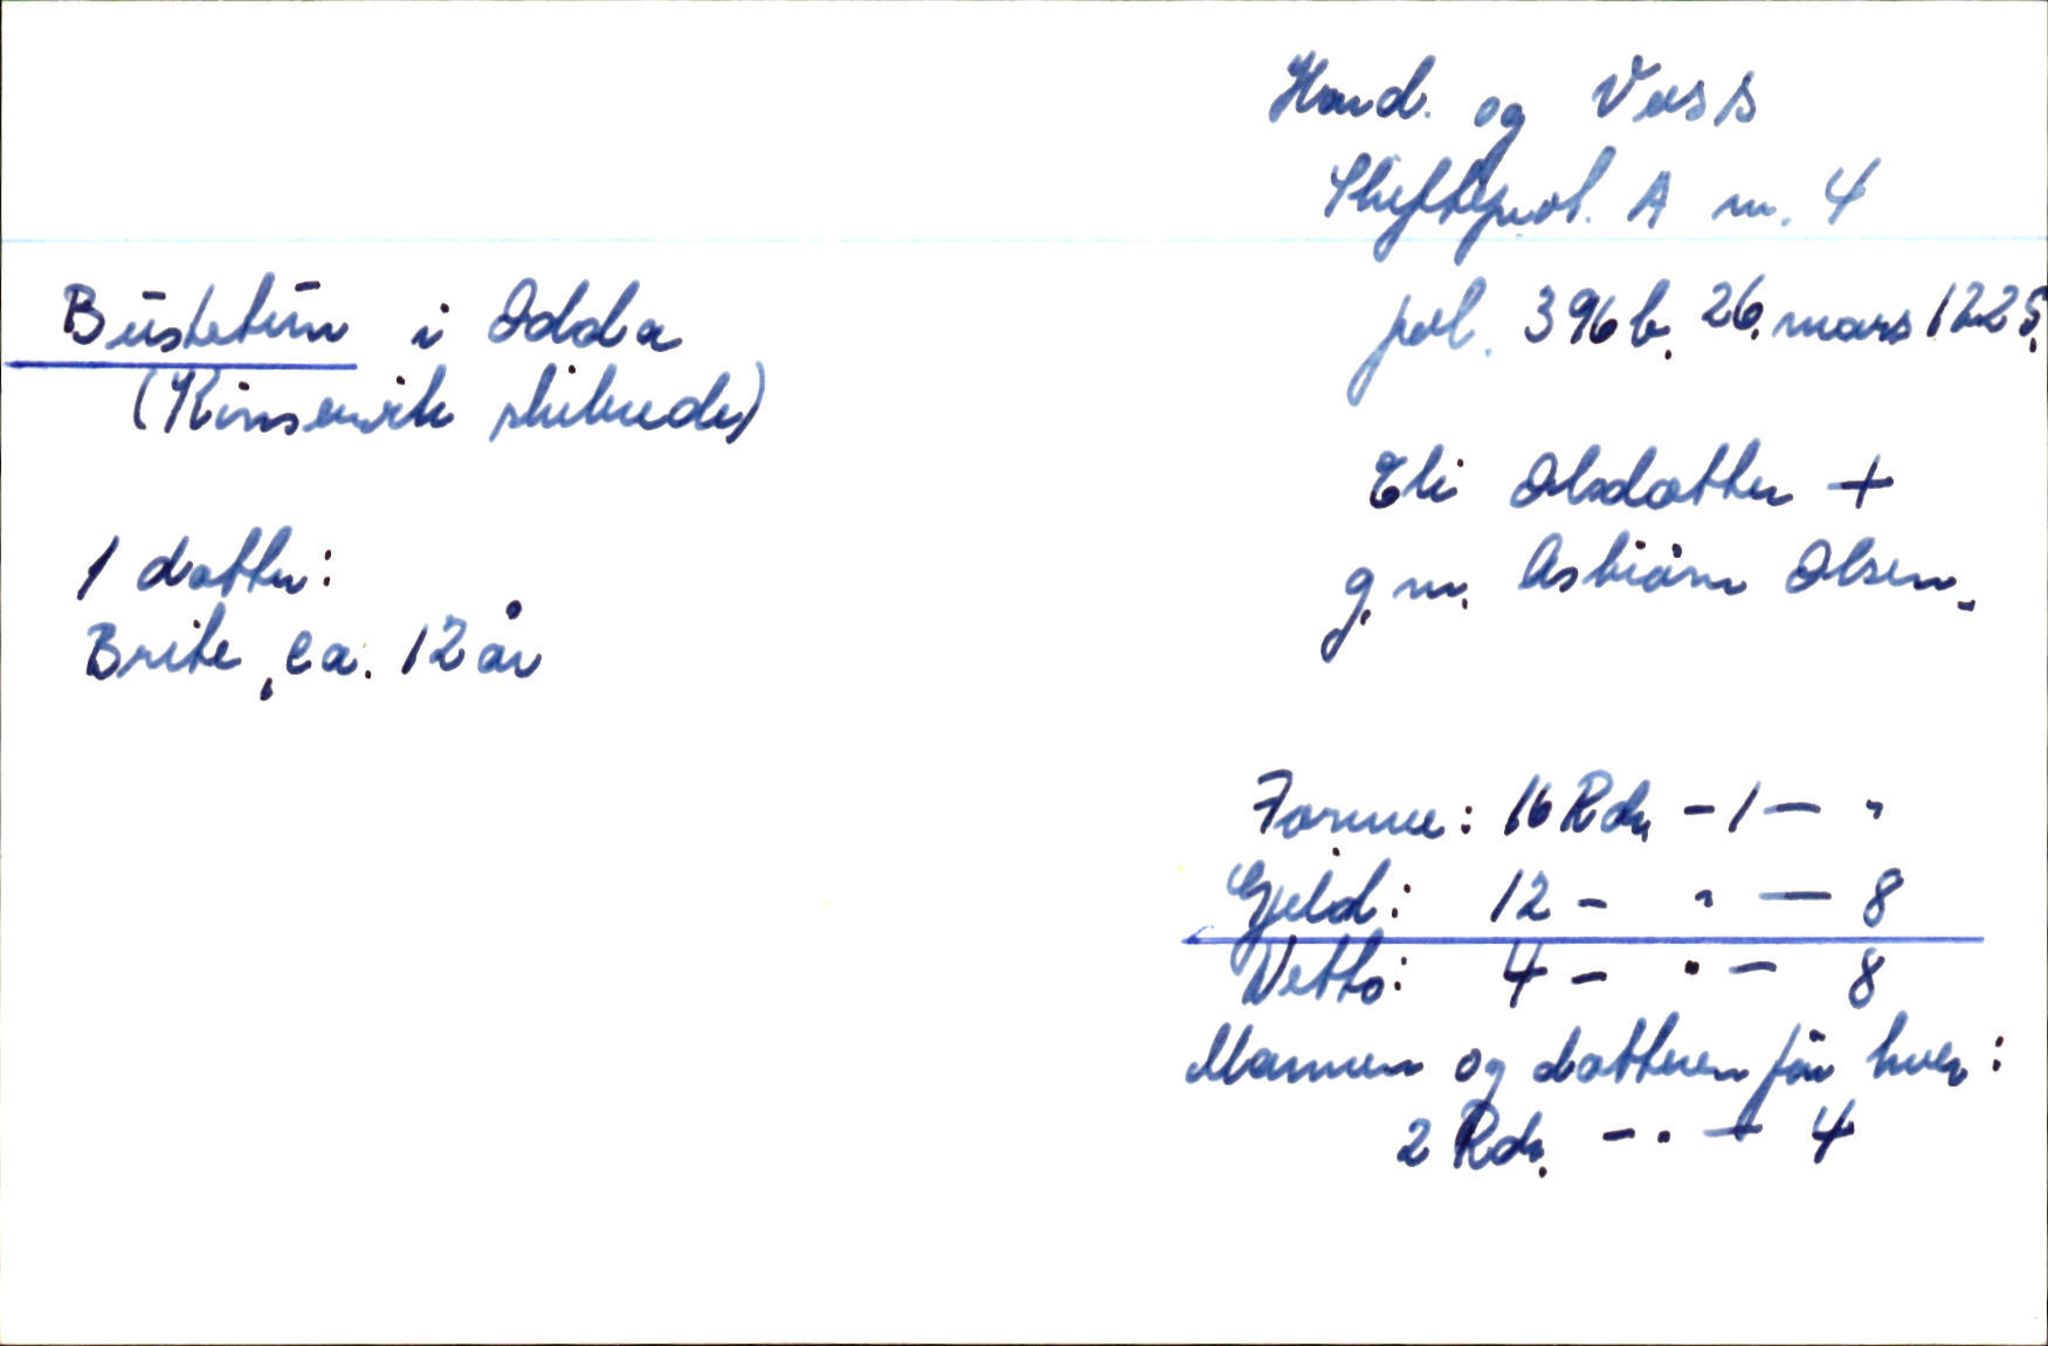 Hard. og Voss
Skifteprot. A nr. 4
fol. 396 b. 26. mars 1725.
Bustetun i Odda
(Kinservik skibrede)
Eli Olsdatter +
g. m. Asbiørn Olsen.
1 datter:
Brite, ca. 12 år
Formue: 16 Rdr. - 1 - "
Gjeld: 12 - " - 8
Netto: 4 - " - 8
Mannen og datteren får hver:
2 Rdr. - " - 4